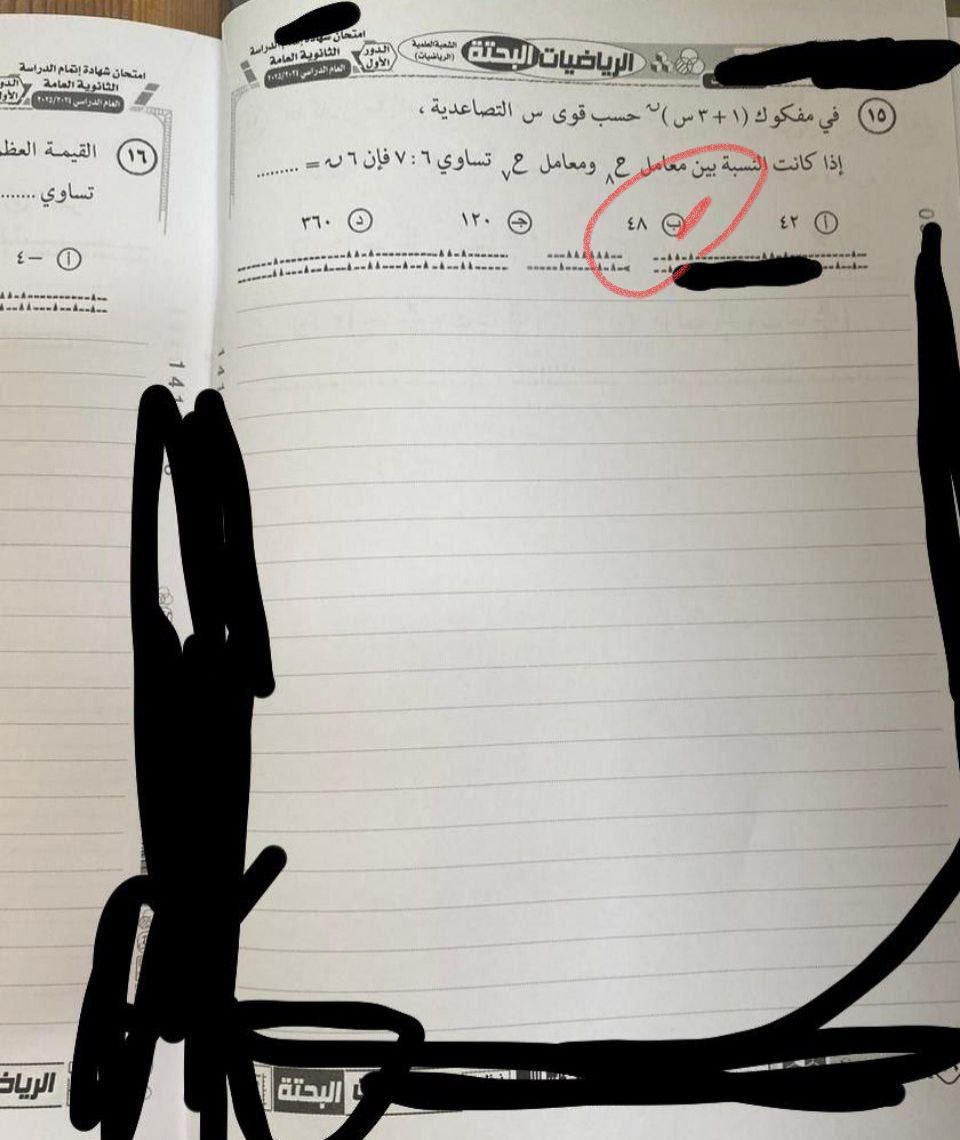 امتحان شهادة إتمام الدراسة
الثانوية العامة
العام الدراسي ٢٠٢٥/٢٠٢٤
الدور
الأول
الشعبة العلمية
(الرياضيات)
الرياضيات البحتة
١٥ في مفكوك (١ + ٣ س)ⁿ حسب قوى س التصاعدية ،
إذا كانت النسبة بين معامل ح٨ ومعامل ح٧ تساوي ٦ : ٧ فإن ٦ ن = .........
أ ٤٢
ب ٤٨
جـ ١٢٠
د ٣٦٠
البحتة
امتحان شهادة إتمام الدراسة
الثانوية العامة
العام الدراسي ٢٠٢٥/٢٠٢٤
الدور
الأول
١٦ القيمة العظم
تساوي .......
أ −٤
الرياض